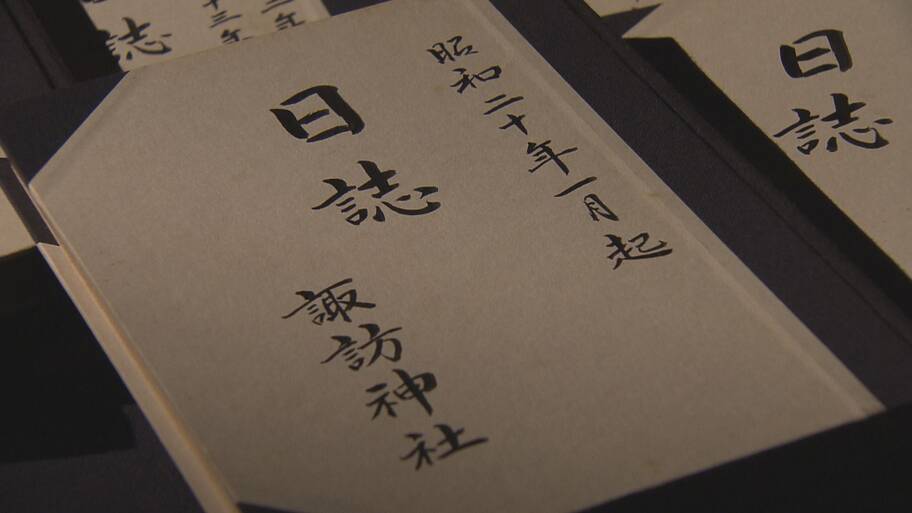 昭和二十年一月起
日誌
諏訪神社
日誌
誌